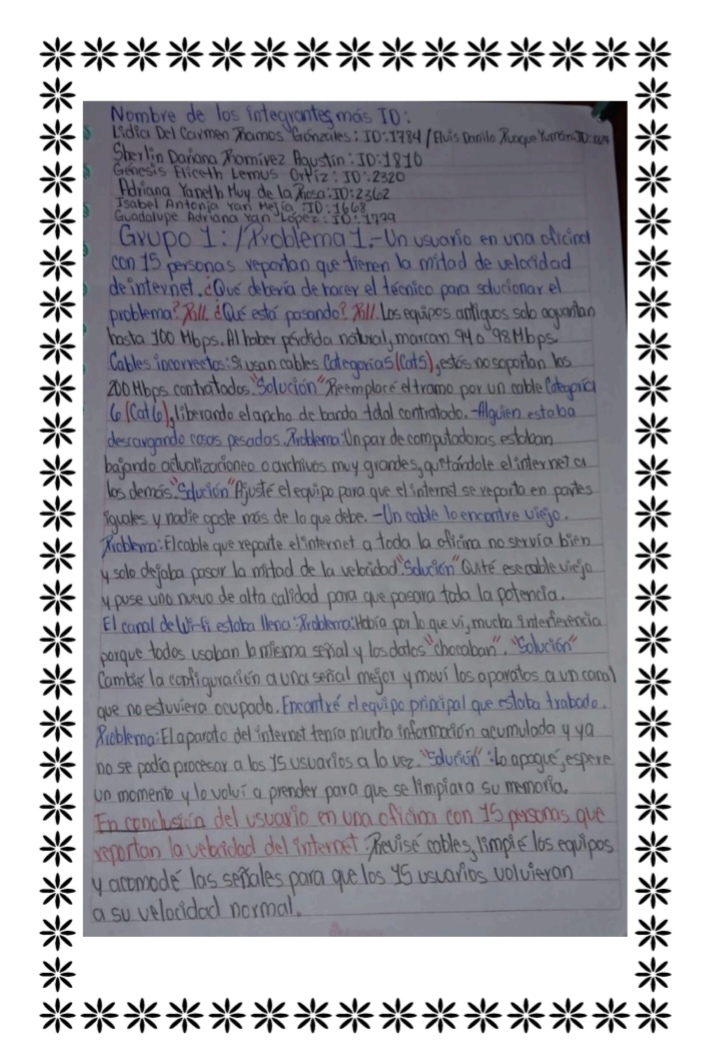 Nombre de los integrantes más ID:
Lidia Del Carmen Ramos Gónzales: ID:1784 / Elvis Danilo Roque
Sherlin Dariana Ramírez Agustín: ID:1810
Génesis Eliceth Lemus Ortíz: ID:2320
Adriana Yaneth Huy de la Rosa: ID:2362
Isabel Antonia Yan Mejía: ID:1668
Guadalupe Adriana Yan López: ID:1779
Grupo 1: / Problema 1.-Un usuario en una oficina
con 15 personas reportan que tienen la mitad de velocidad
de internet. ¿Qué debería de hacer el técnico para solucionar el
problema? R///. ¿Qué está pasando? R///. Los equipos antiguos solo aguantan
hasta 100 Mbps. Al haber pérdida natural, marcan 94 o 98 Mbps.
Cables incorrectos: Si usan cables Categoría 5 (Cat5), estos no soportan los
200 Mbps contratados. "Solución" Reemplacé el tramo por un cable Categoría
6 (Cat6), liberando el ancho de banda total contratado. -Alguien estaba
descargando cosas pesadas. Problema: Un par de computadoras estaban
bajando actualizaciones o archivos muy grandes, quitándole el internet a
los demás. "Solución" Ajusté el equipo para que el internet se reparta en partes
iguales y nadie gaste más de lo que debe. -Un cable lo encontre viejo.
Problema: El cable que reparte el internet a toda la oficina no servía bien
y solo dejaba pasar la mitad de la velocidad. "Solución" Quité ese cable viejo
y puse uno nuevo de alta calidad para que pasara toda la potencia.
El canal de Wi-fi estaba lleno: Problema: Había por lo que vi, mucha interferencia
porque todos usaban la misma señal y los datos "chocaban". "Solución"
Cambié la configuración a una señal mejor y moví los aparatos a un canal
que no estuviera ocupado. Encontré el equipo principal que estaba trabado.
Problema: El aparato del internet tenía mucha información acumulada y ya
no se podía procesar a los 15 usuarios a la vez. "Solución": Lo apagué, espere
un momento y lo volví a prender para que se limpiara su memoria.
En conclusión del usuario en una oficina con 15 personas que
reportan la velocidad del internet: Revisé cables, limpié los equipos
y acomodé las señales para que los 15 usuarios volvieran
a su velocidad normal.